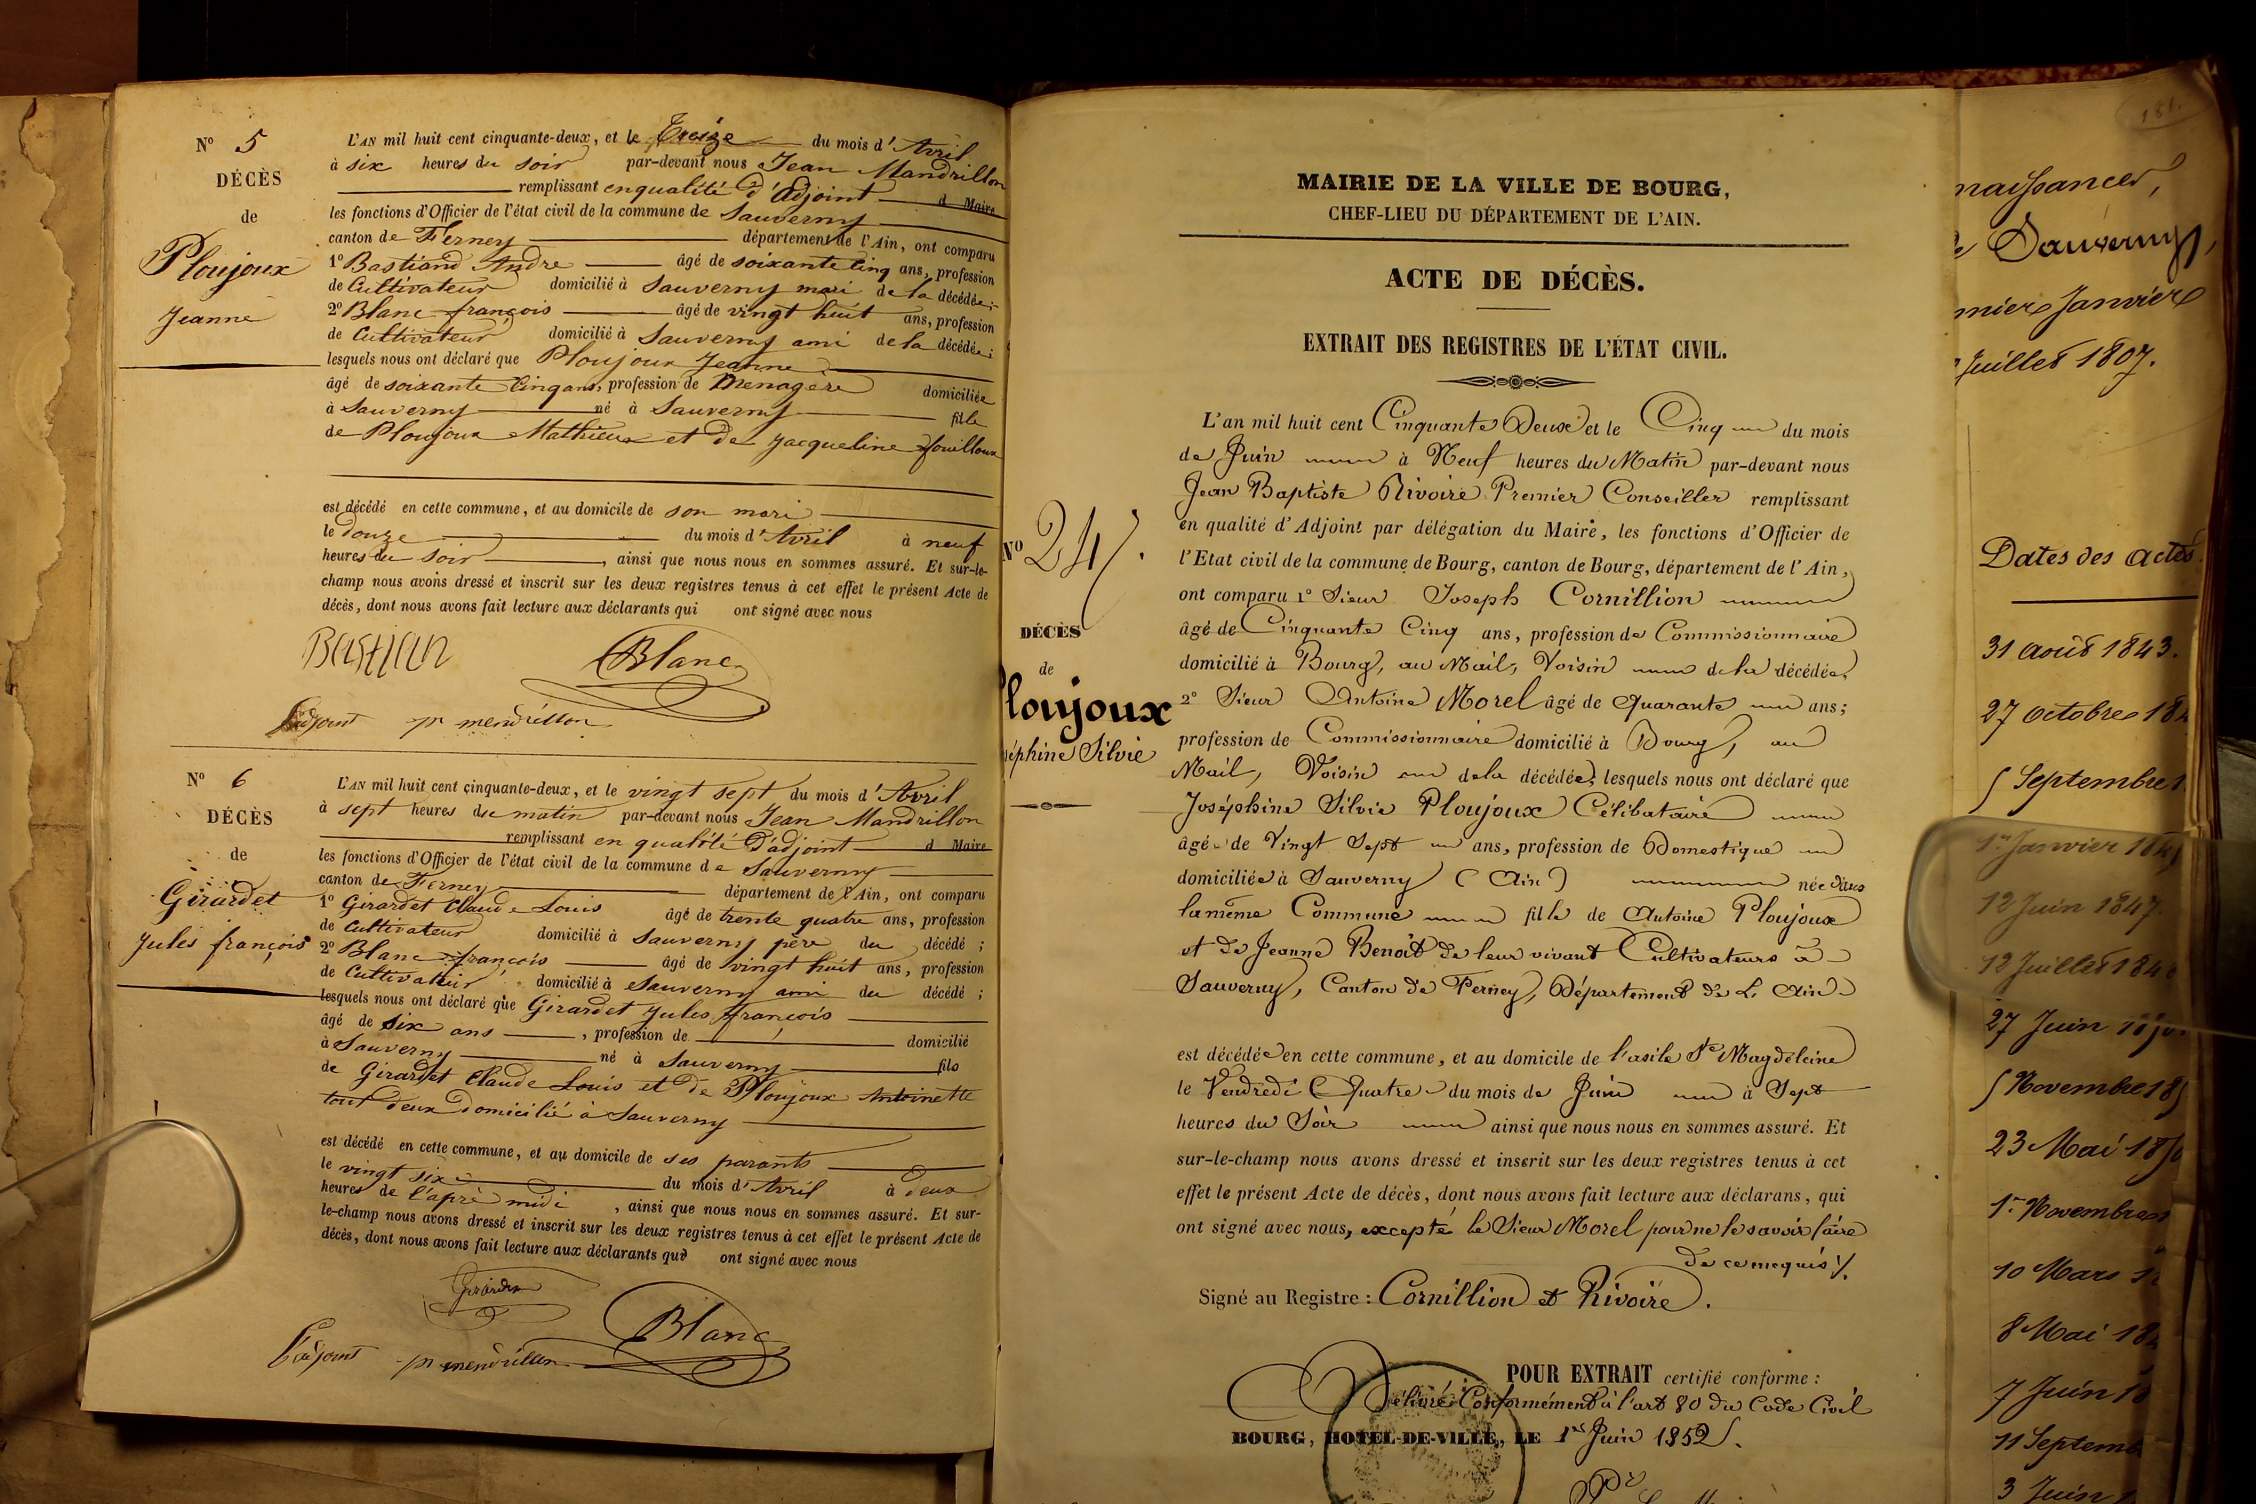 N° 5
DÉCÈS
de
Ploujoux
Jeanne
L'AN mil huit cent cinquante-deux, et le Treize du mois d'Avril
à six heures du soir par-devant nous Jean Mandrillon
remplissant en qualité d'Adjoint d Maire
les fonctions d'Officier de l'état civil de la commune de Sauverny
canton de Ferney département de l'Ain, ont comparu
1° Bastiand Andre âgé de soixante cinq ans, profession
de Cultivateur domicilié à Sauverny mari de la décédée;
2° Blanc françois âgé de vingt huit ans, profession
de Cultivateur domicilié à Sauverny ami de la décédée;
lesquels nous ont déclaré que Ploujoux Jeanne
âgé de soixante Cinq ans, profession de Menagère domiciliée
à Sauverny né à Sauverny fille
de Ploujoux Mathieux et de Jacqueline fouilloux
est décédé en cette commune, et au domicile de son mari
le douze du mois d'Avril à neuf
heures du soir, ainsi que nous nous en sommes assuré. Et sur-le-
champ nous avons dressé et inscrit sur les deux registres tenus à cet effet le présent Acte de
décès, dont nous avons fait lecture aux déclarants qui ont signé avec nous
Blanc
L'adjoint mendrillon
N° 6
DÉCÈS
de
Girardet
Jules françois
L'AN mil huit cent cinquante-deux, et le vingt sept du mois d'Avril
à sept heures du matin par-devant nous Jean Mandrillon
remplissant en qualité d'adjoint d Maire
les fonctions d'Officier de l'état civil de la commune de Sauverny
canton de Ferney département de l'Ain, ont comparu
1° Girardet Claude Louis âgé de trente quatre ans, profession
de Cultivateur domicilié à Sauverny père du décédé;
2° Blanc françois âgé de vingt huit ans, profession
de Cultivateur domicilié à Sauverny ami du décédé;
lesquels nous ont déclaré que Girardet Jules françois
âgé de six ans, profession de domicilié
à Sauverny né à Sauverny fils
de Girardet Claude Louis et de Ploujoux Antoinette
tout deux Domicilié à Sauverny
est décédé en cette commune, et au domicile de ses parants
le vingt six du mois d'Avril à deux
heures de l'aprè midi, ainsi que nous nous en sommes assuré. Et sur-
le-champ nous avons dressé et inscrit sur les deux registres tenus à cet effet le présent Acte de
décès, dont nous avons fait lecture aux déclarants qui ont signé avec nous
Blanc
L'adjoint mendrillon
MAIRIE DE LA VILLE DE BOURG,
CHEF-LIEU DU DÉPARTEMENT DE L'AIN.
ACTE DE DÉCÈS.
EXTRAIT DES REGISTRES DE L'ÉTAT CIVIL.
N° 247.
DÉCÈS
de
Ploujoux
séphine Silvie
L'an mil huit cent Cinquante Deux et le Cinq du mois
de Juin à Neuf heures du Matin par-devant nous
Jean Baptiste Rivoire Premier Conseiller remplissant
en qualité d'Adjoint par délégation du Maire, les fonctions d'Officier de
l'Etat civil de la commune de Bourg, canton de Bourg, département de l'Ain,
ont comparu 1° Sieur Joseph Cornillion
âgé de Cinquante Cinq ans, profession de Commissionnaire
domicilié à Bourg, au Mail, Voisin de la décédée.
2° Sieur Antoine Morel âgé de Quarante ans;
profession de Commissionnaire domicilié à Bourg, au
Mail, Voisin de la décédée, lesquels nous ont déclaré que
Joséphine Silvie Ploujoux Célibataire
âgée de Vingt Sept ans, profession de Domestique
domiciliée à Sauverny (Ain) née dans
la même Commune fille de Antoine Ploujoux
et de Jeanne Benoît de leur vivant Cultivateurs à
Sauverny, Canton de Ferney, Département de L'Ain
est décédée en cette commune, et au domicile de l'asile Ste Magdeleine
le Vendredi Quatre du mois de Juin à Sept
heures du Soir ainsi que nous nous en sommes assuré. Et
sur-le-champ nous avons dressé et inscrit sur les deux registres tenus à cet
effet le présent Acte de décès, dont nous avons fait lecture aux déclarans, qui
ont signé avec nous, excepté le Sieur Morel pour ne le savoir faire
de ce requis
Signé au Registre: Cornillion et Rivoire.
POUR EXTRAIT certifié conforme:
Délivré Conformément à l'art 80 du Code Civil
BOURG, HOTEL-DE-VILLE, LE Juin 1852.
181.
naissances,
Sauverny,
mier Janvier
Juillet 1807.
Dates des actes.
31 août 1843.
27 octobre 184
5 Septembre 1
1er Janvier 184
12 Juin 1847.
12 Juillet 184
27 Juin 1850
5 Novembre 185
23 Mai 18
1er Novembre
10 Mars
8 Mai 18
7 Juin 1
11 Septemb
3 Juin